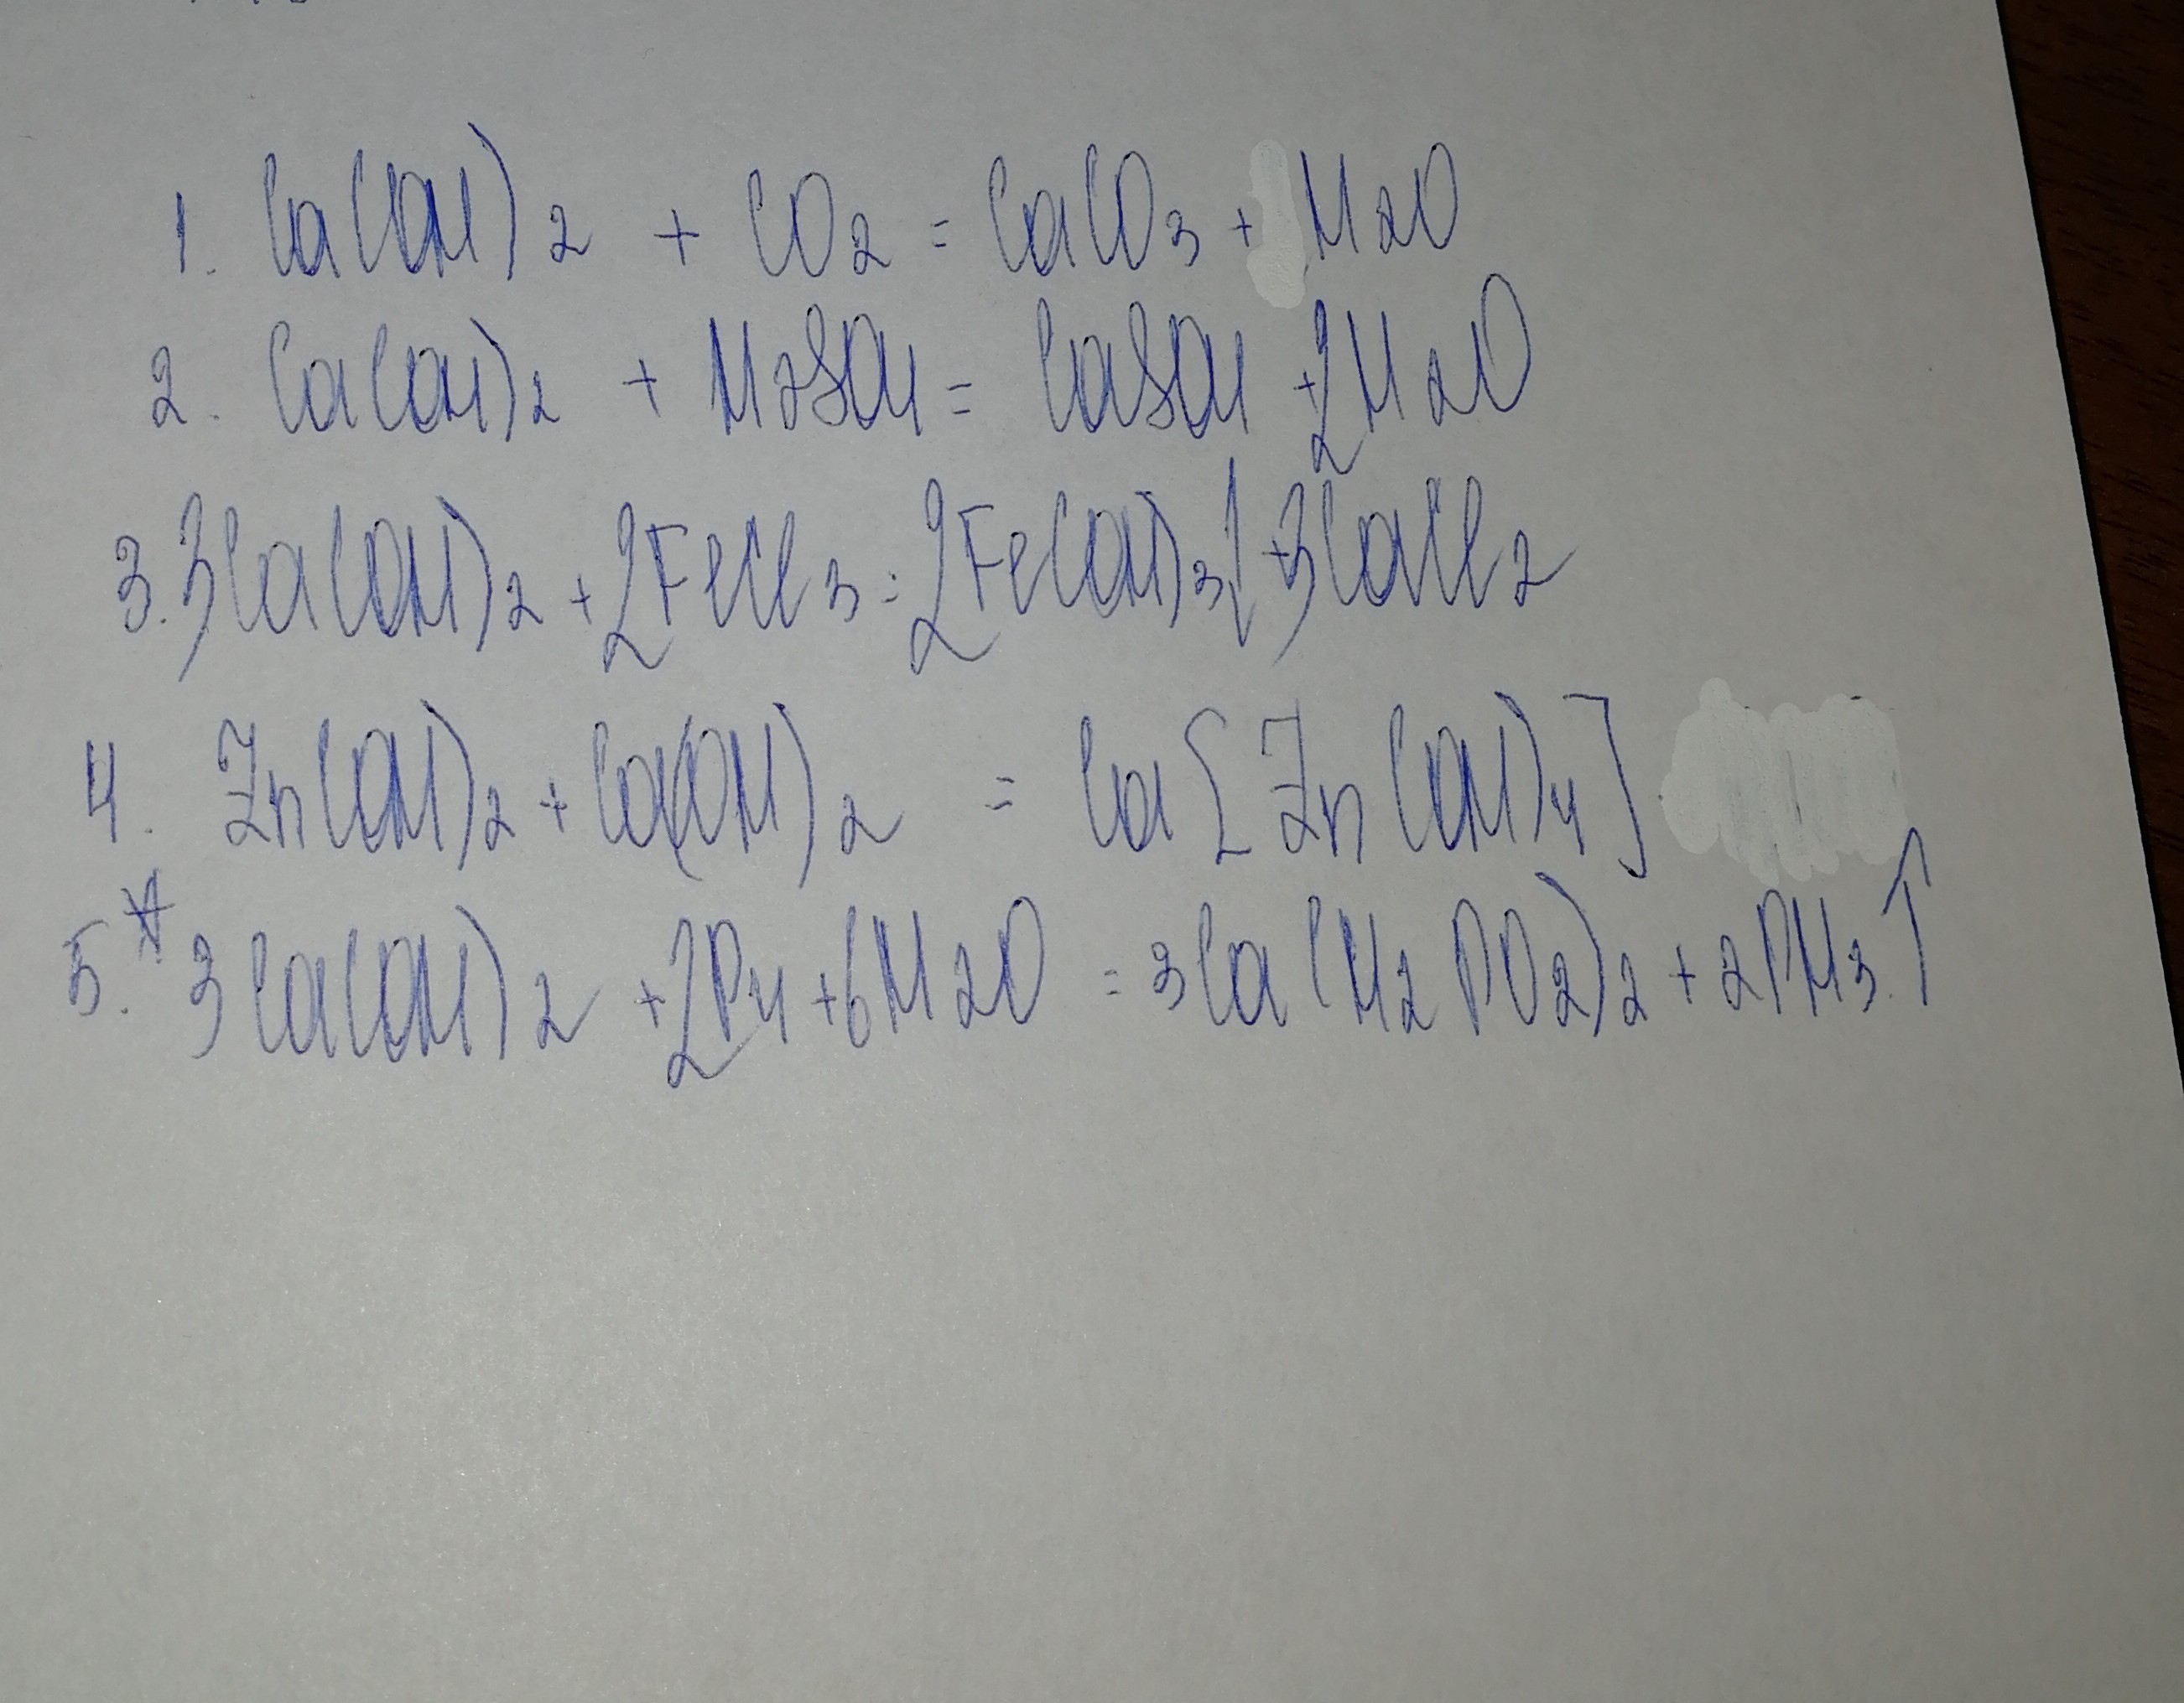 1. Ca(OH)2 + CO2 = CaCO3 + H2O
2. Ca(OH)2 + H2SO4 = CaSO4 + 2H2O
3. 3Ca(OH)2 + 2FeCl3 = 2Fe(OH)3↓ + 3CaCl2
4. Zn(OH)2 + Ca(OH)2 = Ca[Zn(OH)4]
5.* 3Ca(OH)2 + 2P4 + 6H2O = 3Ca(H2PO2)2 + 2PH3.↑